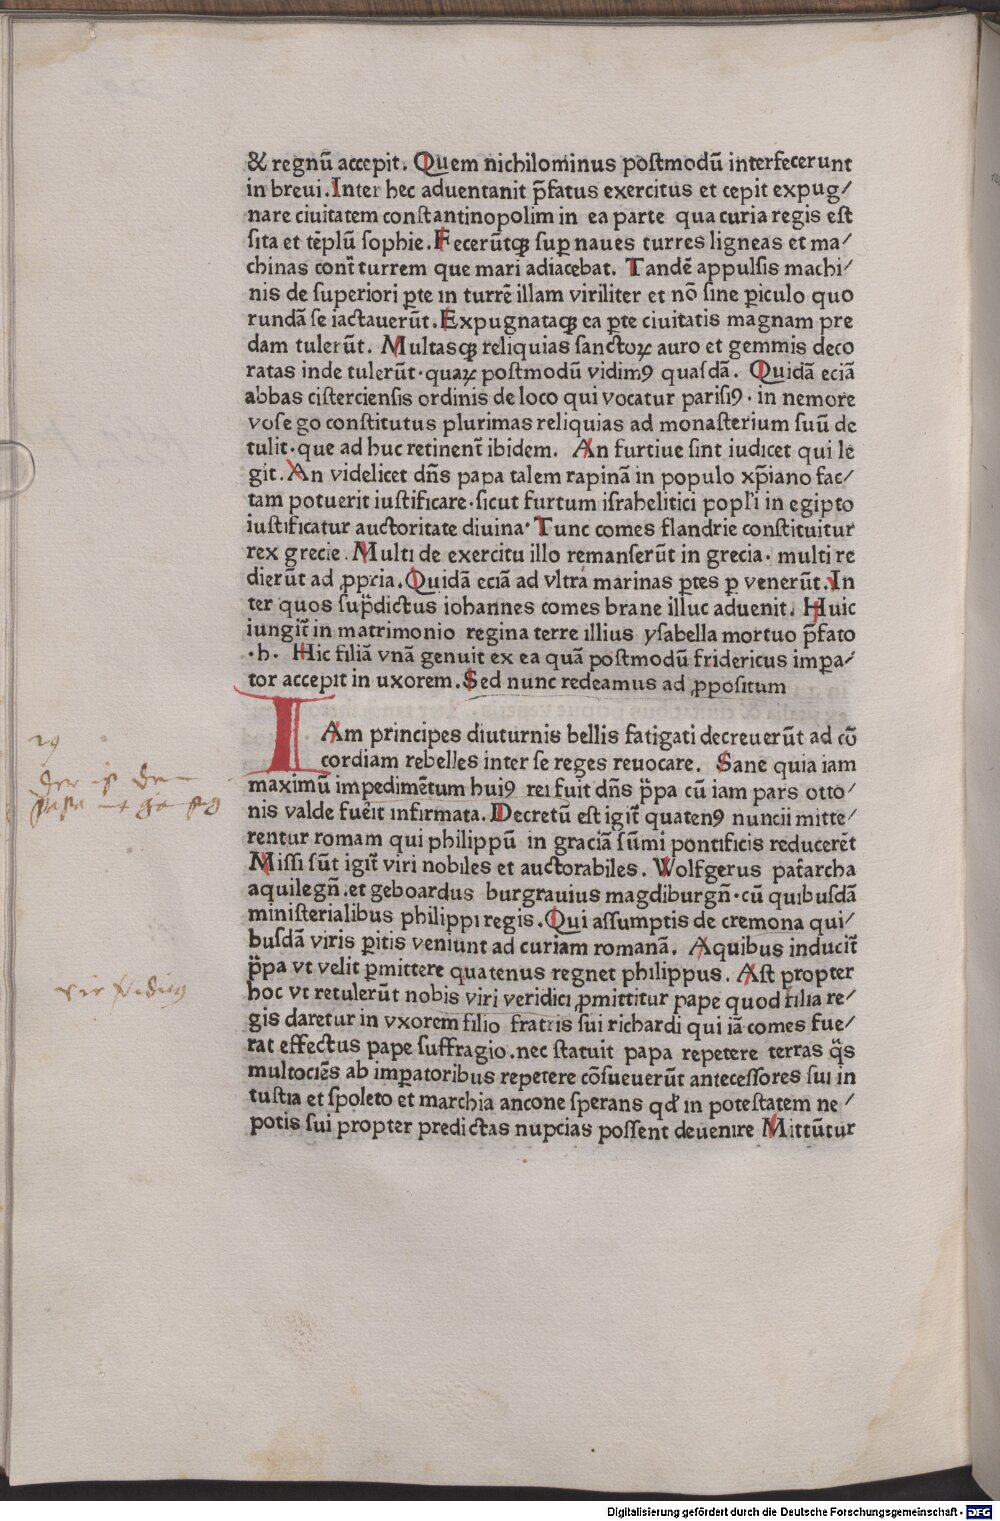 & regnū accepit. Quem nichilominus postmodū interfecerunt
in breui. Inter hec aduentanit p̄fatus exercitus et cepit expug⸗
nare ciuitatem constantinopolim in ea parte qua curia regis est
sita et tēplū sophie. Fecerūtqꝫ suꝑ naues turres ligneas et ma⸗
chinas cont̄ turrem que mari adiacebat. Tandē appulsis machi⸗
nis de superiori ꝑte in turrē illam viriliter et nō sine ꝑiculo quo
rundā se iactauerūt. Expugnataqꝫ ea ꝑte ciuitatis magnam pre
dam tulerūt. Multasqꝫ reliquias sanctoꝝ auro et gemmis deco
ratas inde tulerūt · quaꝝ postmodū vidimꝯ quasdā. Quidā eciā
abbas cisterciensis ordinis de loco qui vocatur parisiꝯ · in nemore
vosego constitutus plurimas reliquias ad monasterium suū de
tulit · que ad huc retinent̄ ibidem. An furtiue sint iudicet qui le
git. An videlicet dn̄s papa talem rapinā in populo xp̄iano fac⸗
tam potuerit iustificare · sicut furtum israhelitici popl'i in egipto
iustificatur auctoritate diuina · Tunc comes flandrie constituitur
rex grecie. Multi de exercitu illo remanserūt in grecia · multi re
dierūt ad ꝓpria. Quidā eciā ad vltra marinas ꝑtes ꝑ venerūt. In
ter quos sup̄dictus iohannes comes brane illuc aduenit. Huic
iungit̄ in matrimonio regina terre illius ysabella mortuo p̄fato
· h · Hic filiā vnā genuit ex ea quā postmodū fridericus imꝑa⸗
tor accepit in uxorem. Sed nunc redeamus ad ꝓpositum
IAm principes diuturnis bellis fatigati decreuerūt ad cō
cordiam rebelles inter se reges reuocare. Sane quia iam
maximū impedimētum huiꝯ rei fuit dn̄s p̄pa cū iam pars otto⸗
nis valde fuēit infirmata. Decretū est igit̄ quatenꝯ nuncii mitte⸗
rentur romam qui philippū in graciā sūmi pontificis reducerēt
Missi sūt igit̄ viri nobiles et auctorabiles. Wolfgerus pat̄archa
aquilegn̄. et geboardus burgrauius magdiburgn̄ · cū quibusdā
ministerialibus philippi regis. Qui assumptis de cremona qui⸗
busdā viris ꝑitis veniunt ad curiam romanā. Aquibus inducit̄
p̄pa vt velit ꝑmittere quatenus regnet philippus. Ast propter
hoc vt retulerūt nobis viri veridici ꝓmittitur pape quod filia re⸗
gis daretur in vxorem filio fratris sui richardi qui iā comes fue⸗
rat effectus pape suffragio. nec statuit papa repetere terras q̄s
multociēs ab imꝑatoribus repetere cōsueuerūt antecessores sui in
tustia et spoleto et marchia ancone sperans qd' in potestatem ne⸗
potis sui propter predictas nupcias possent deuenire Mittūtur
Digitalisierung gefördert durch die Deutsche Forschungsgemeinschaft - DFG